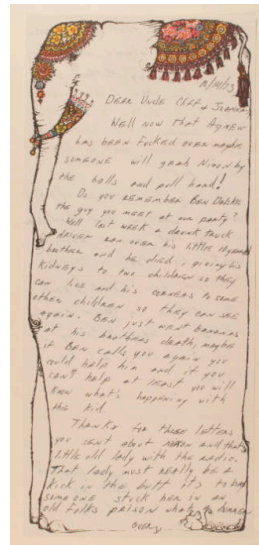 10/10/73
Dear Uncle Cliff & Joanna
Well now that Agnew
has been fucked over maybe
someone will grab Nixon by
the balls and pull hard!
Do you remember Ben Dalbke
the guy you meet at our party?
Well last week a drunk truck
driver ran over his little 14 year
brother and he died, giving his
kidneys to two children so they
can live and his corners to some
other children so they can see
again. Ben just went bananas
at his brothers death, maybe
if Ben calls you again you
could help him and if you
can't help at least you will
know what's happening with
the kid.
Thanks for those letters
you sent about Nixon and that
little old lady with the radio.
That lady must really be a
kick in the butt it's to bad
someone stuck her in an
old folks prison what a bummer
over